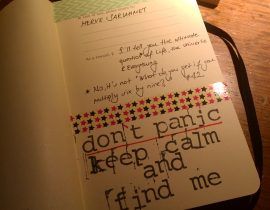 HERVE SARUHNNET
As a reward: $ I'll tell you the ultimate
question of Life, the Universe
& Everything
* No, it's not "What do you get if you
multiply six by nine?" #42
don't panic
keep calm
and
find me